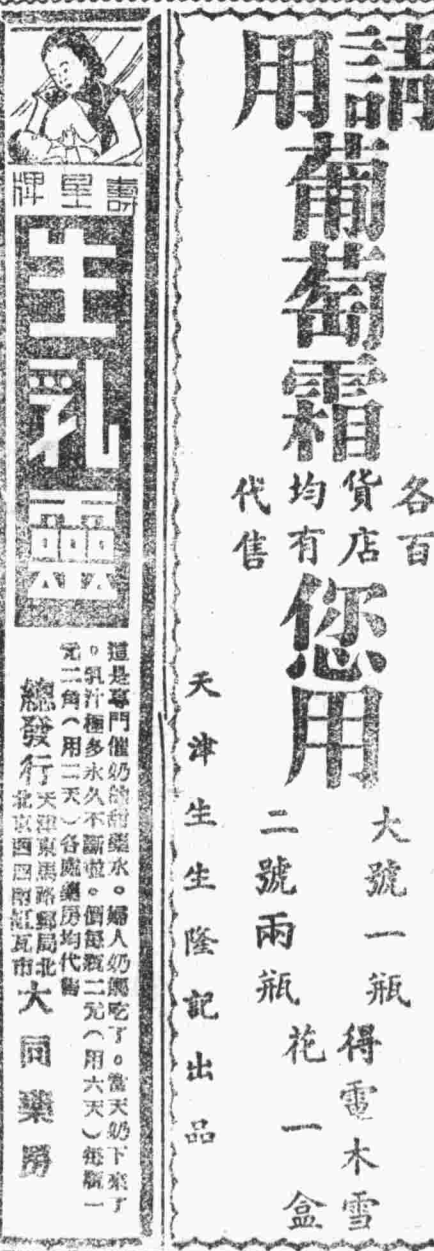 請用
葡萄霜
各百
貨店
均有
代售
您用
大號一瓶
二號兩瓶
得電木雪
花一盒
天津生生隆記出品
壽星牌
生乳靈
這是專門催奶的甜藥水。婦人奶少吃了。當天奶下來了
。乳汁極多永久不斷啦。價每瓶二元(用六天)每瓶一
元二角(用二天)各處藥房均代售
總發行
天津東馬路郵局北
北京西四南缸瓦市
大同藥房